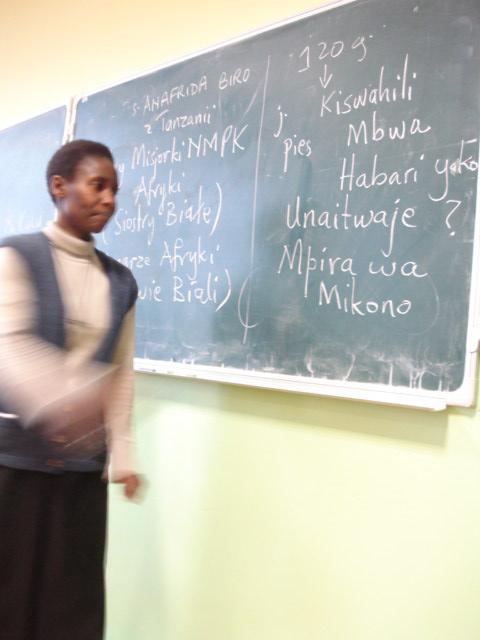 s. ANAFRIDA BIRO
z Tanzanii
Misjorki NMPK
Afryki
(Siostry Białe)
Afryki
Biali)
120 g.
↓
j. Kiswahili
pies Mbwa
Habari yako
Unaitwaje ?
Mpira wa
Mikono